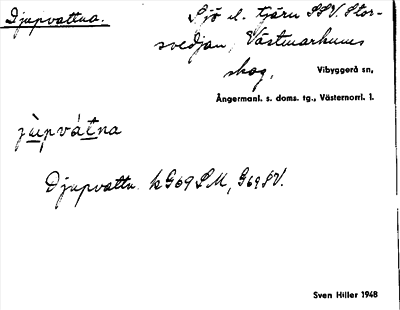 Djupvattna.
Sjö el. tjärn SSV. Stor-
svedjan, Västmarkens
skog, Vibyggerå sn,
Ångermanl. s. doms. tg., Västernorrl. l.
jùpvát̲na
Djupvattn. kG69SM, G69SV.
Sven Hiller 1948